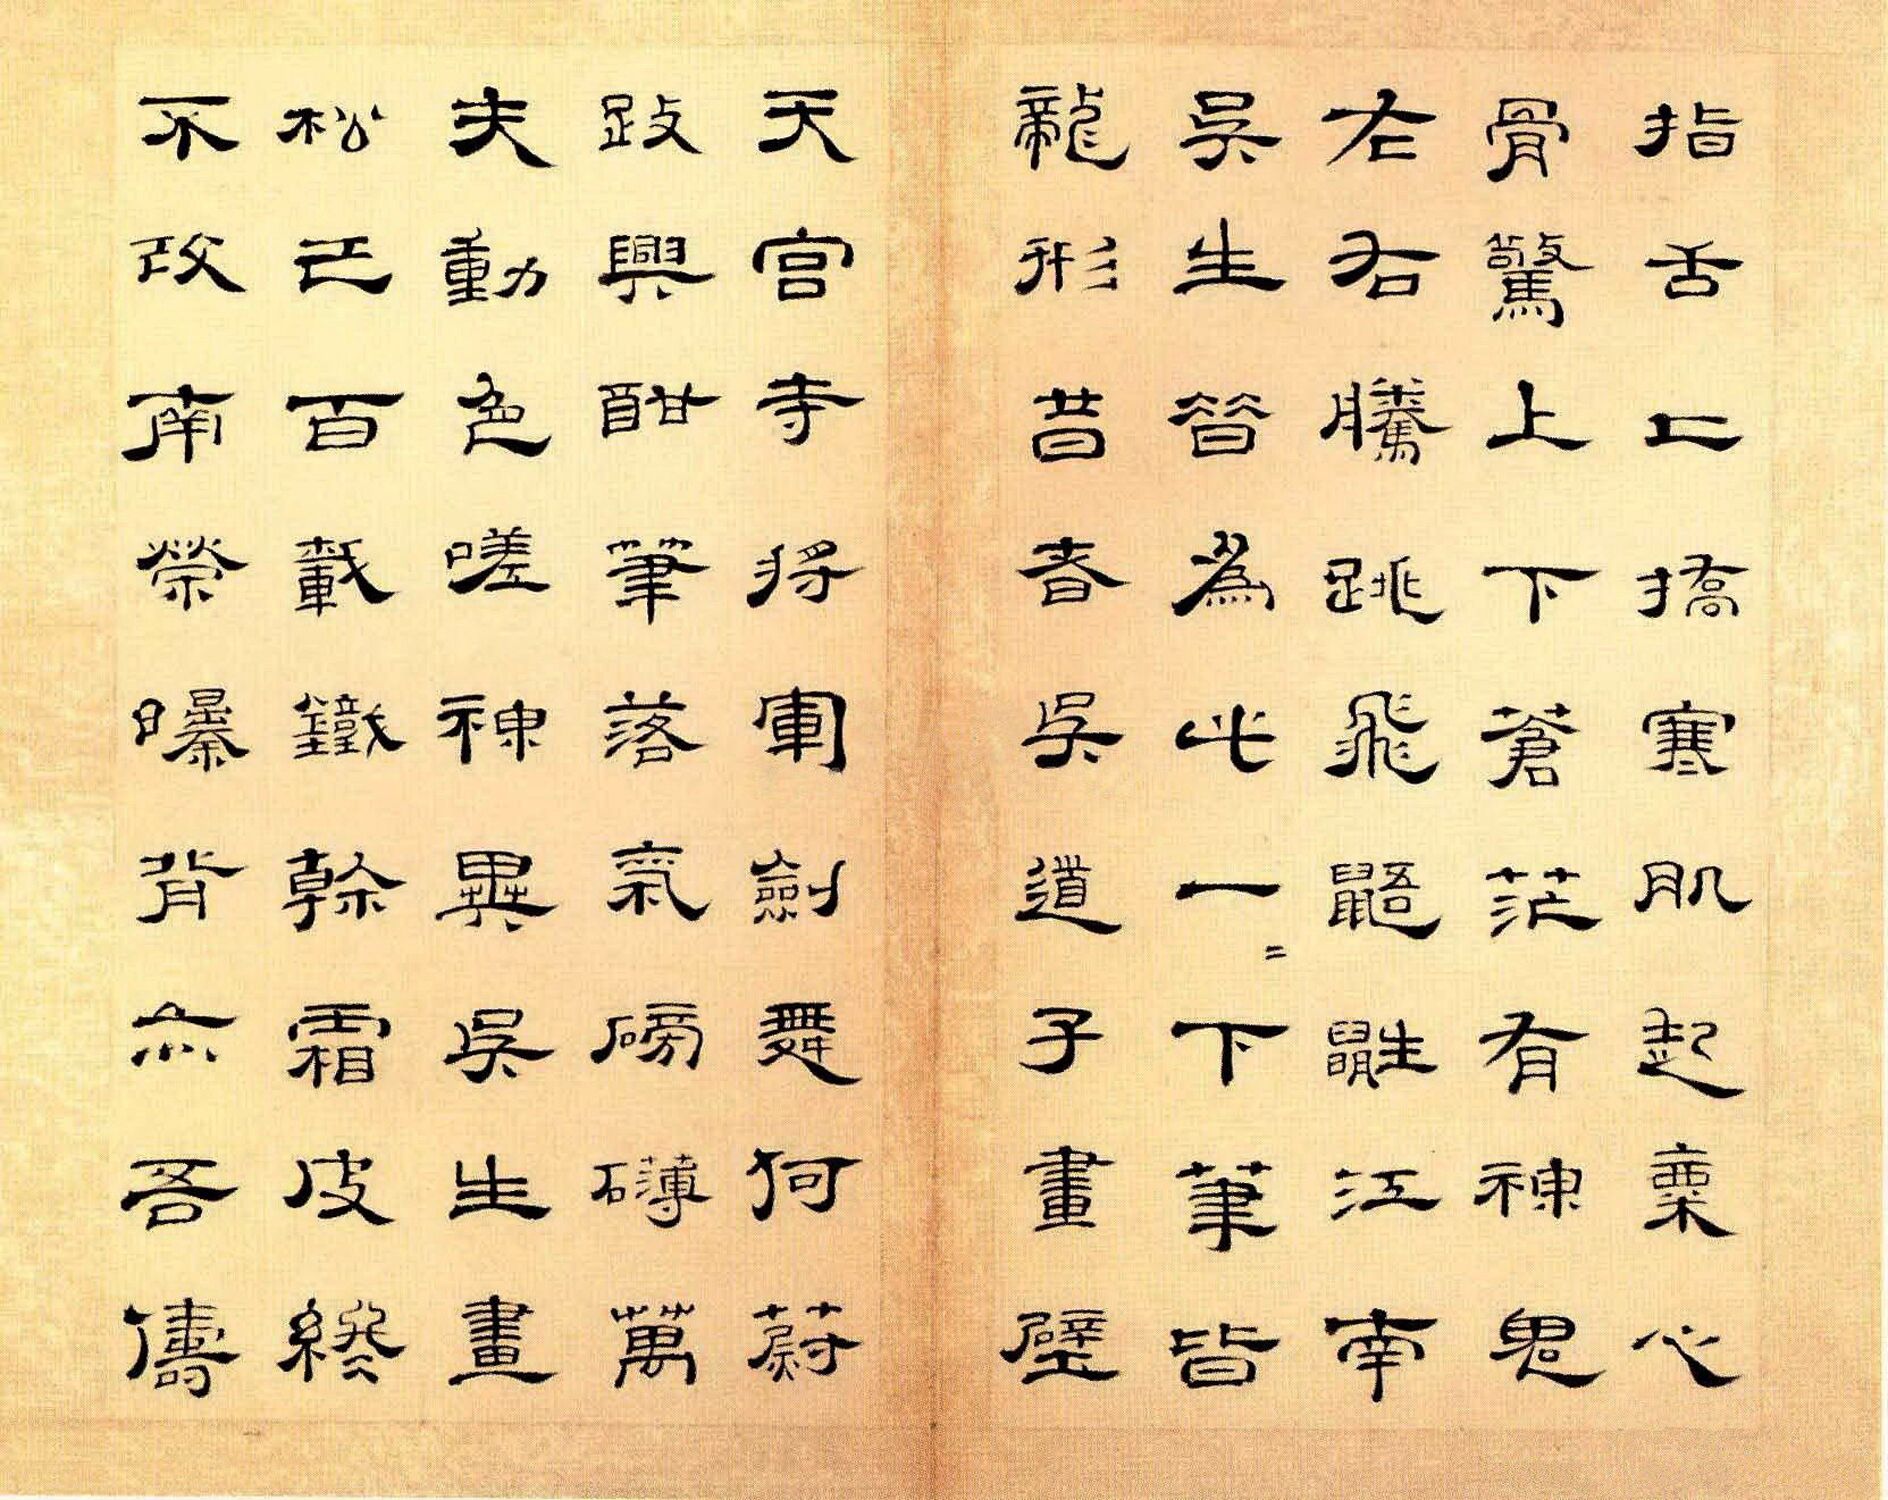 指舌上撟寒肌起粟心
骨驚上下蒼茫有神鬼
左右騰跳飛鼯鼪江南
吳生晉為此一〻下筆皆
龍形昔者吳道子畫壁
天宮寺將軍劍舞何蔚
跂興酣筆落氣磅礴萬
夫動色嗟神異吳生畫
松已百載鐵榦霜皮終
不改南榮曝背亦吾儔